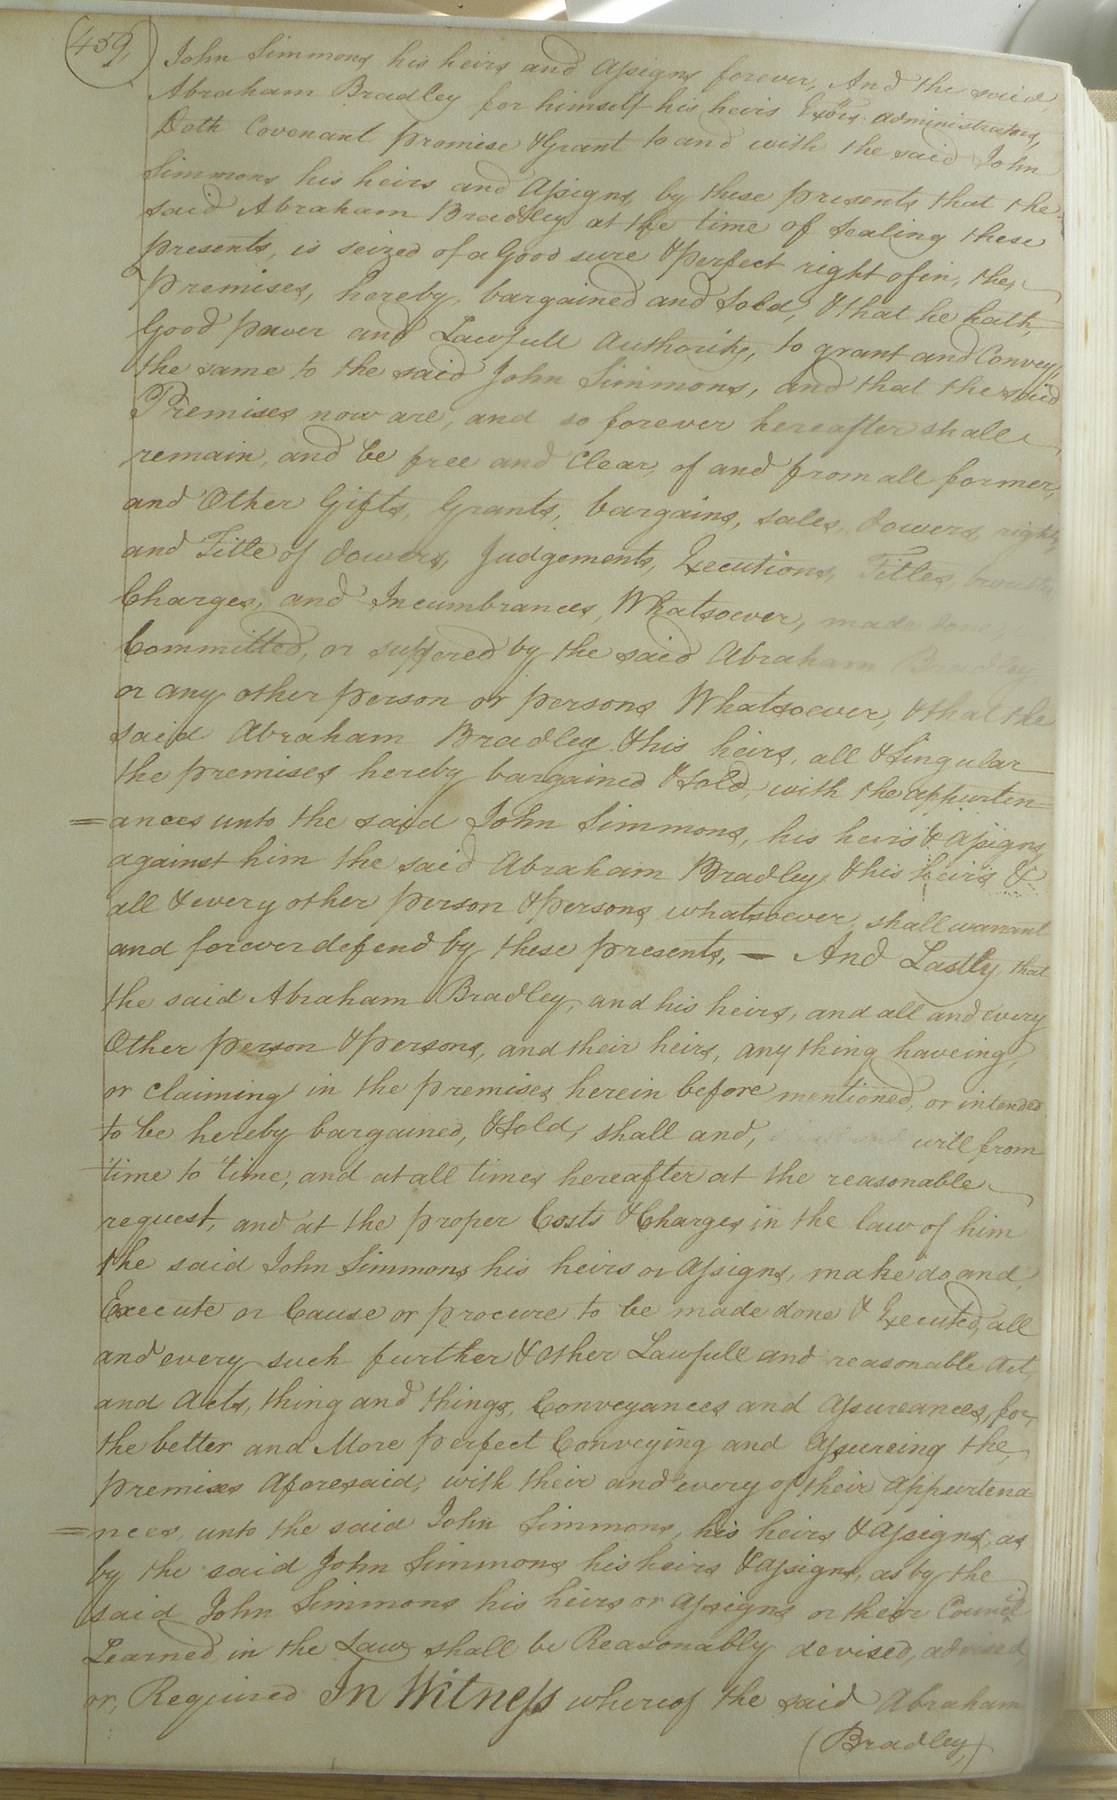 459,
John Simmons his heirs and Assigns forever, And the said
Abraham Bradley for himself his heirs Exōrs administrators,
Doth Covenant promise & Grant to and with the said John
Simmons his heirs and Assigns, by these presents that the
said Abraham Bradley at the time of sealing these
presents, is seized of a Good sure & perfect right of in, the
Premises, hereby, bargained and Sold, & that he hath,
Good power and Lawfull Authority, to grant and Convey,
the same to the said John Simmons, and that the said
Premises now are, and so forever hereafter shall
remain, and be free and Clear, of and from all former,
and Other Gifts, Grants, bargains, sales, dowers, rights,
and Title of dowers, Judgements, Executions, Titles,
Charges, and Incumbrances, Whatsoever, made done,
Committed, or suffered by the said Abraham Bradley
or any other person or persons Whatsoever, & that the
said Abraham Bradley & his heirs, all & Singular
the premises hereby bargained & Sold, with the appurten
=ances unto the said John Simmons, his heirs & Assigns
against him the said Abraham Bradley, & his heirs &
all & every other person & persons whatsoever shall warrant
and forever defend by these presents, — And Lastly, that
the said Abraham Bradley, and his heirs, and all and every
Other person & persons, and their heirs, any thing haveing,
or claiming in the premises herein before mentioned, or intended
to be hereby bargained, & Sold, shall and, will from
time to time, and at all times hereafter at the reasonable
request, and at the proper Costs & Charges in the law of him
the said John Simmons his heirs or Assigns, make do and,
Execute or Cause or procure to be made done & Executed, all
and every such further & other Lawfull and reasonable Act,
and Acts, thing and things, Conveyances and Assureances, for,
the better and More perfect Conveying and Assureing the,
premises Aforesaid, with their and every of their Appurtena
=nces, unto the said John Simmons, his heirs & Assigns, as
by the said John Simmons his heirs & Assigns, as by the
said John Simmons his heirs or Assigns or their Council
Learned in the Law shall be Reasonably devised, advised
or, Required In Witness whereof the said Abraham
(Bradley,)